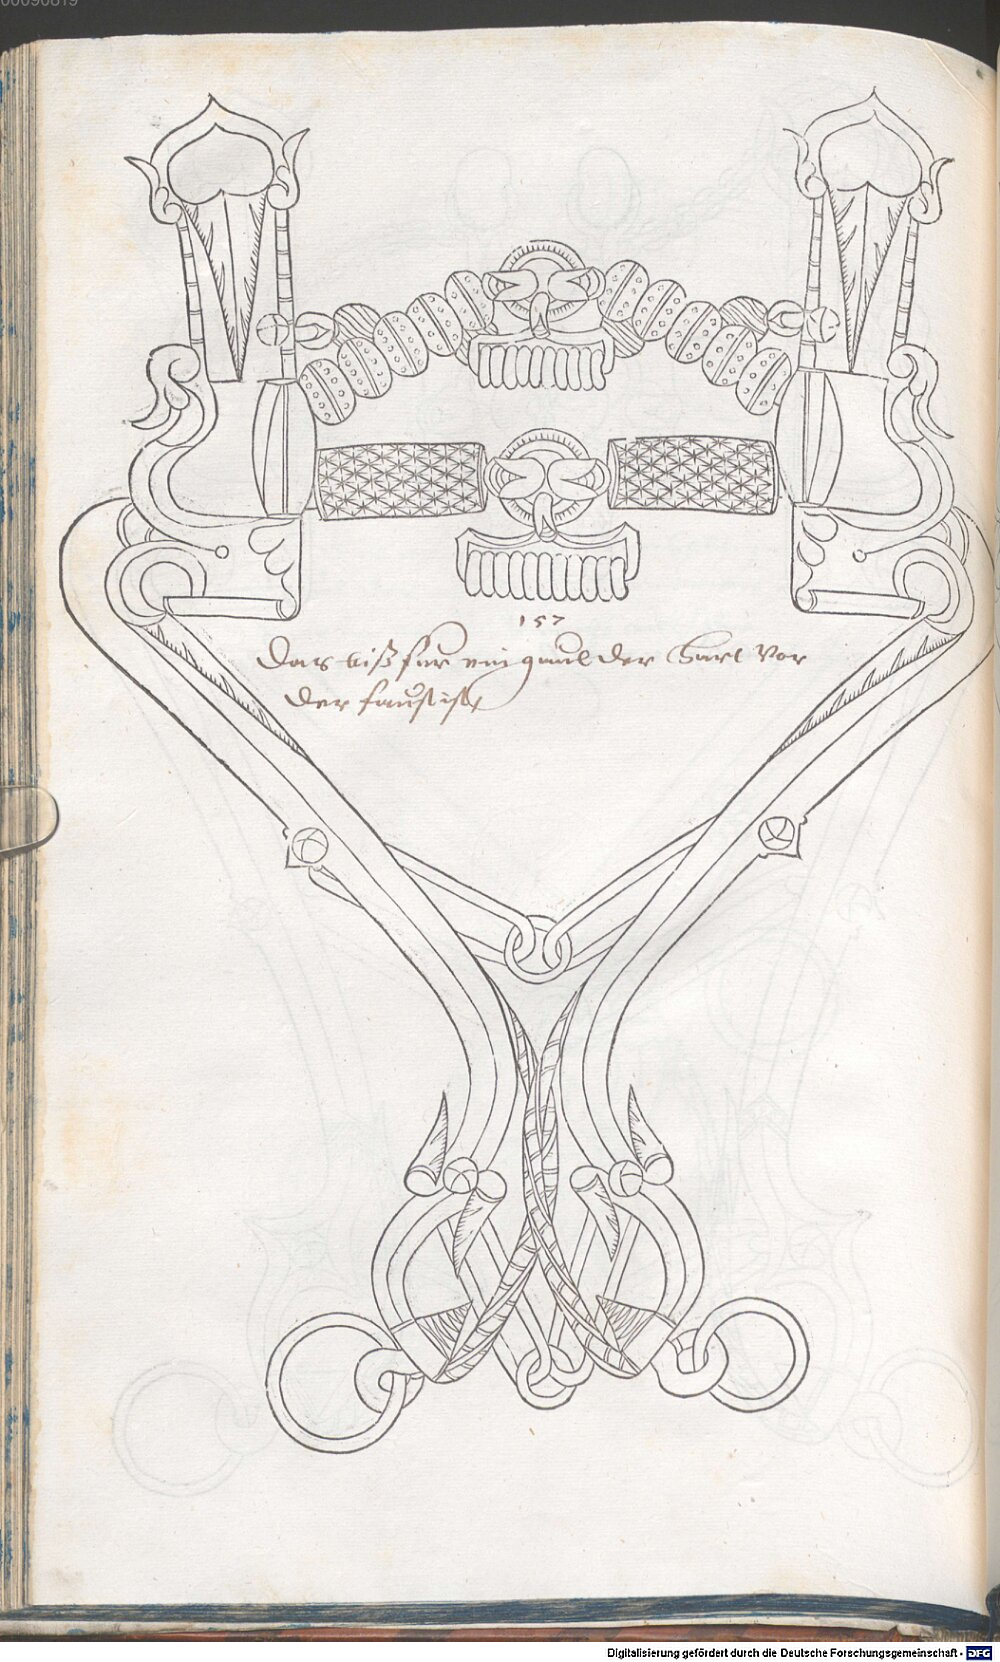 00090819
157
Das biß für ein gaul der Hart Vor
der faust ist
Digitalisierung gefördert durch die Deutsche Forschungsgemeinschaft - DFG